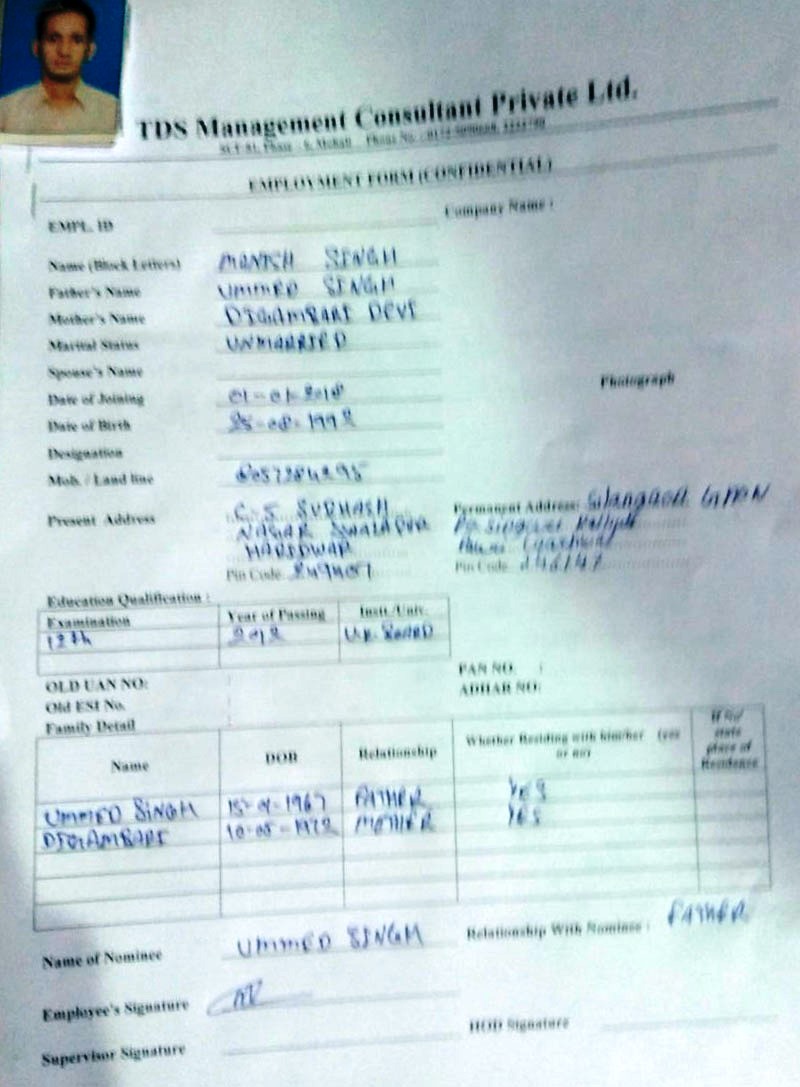 TDS Management Consultant Private Ltd.
EMPLOYMENT FORM (CONFIDENTIAL)
EMPL. ID
Company Name :
Name (Block Letters) MANISH SINGH
Father's Name UMMED SINGH
Mother's Name DIGAMBARI DEVI
Marital Status UNMARRIED
Spouse's Name
Photograph
Date of Joining 01-01-2018
Date of Birth 25-08-1992
Designation
Mob. / Land line
Present Address C-5 SUBHASH
NAGAR JWALAPUR
HARIDWAR
Pin Code 249407
Permanent Address:
Pin Code 246147
Education Qualification :
Examination Year of Passing Instt./Univ.
12th 2012 U.K. BOARD
PAN NO. :
OLD UAN NO:
ADHAR NO:
Old ESI No.
Family Detail
Name DOB Relationship Whether Residing with him/her (yes or no) If No/ state place of Residence
UMMED SINGH 1967 FATHER YES
DIGAMBARI 10-05-1972 MOTHER YES
Name of Nominee UMMED SINGH Relationship With Nominee : FATHER
Employee's Signature
HOD Signature
Supervisor Signature